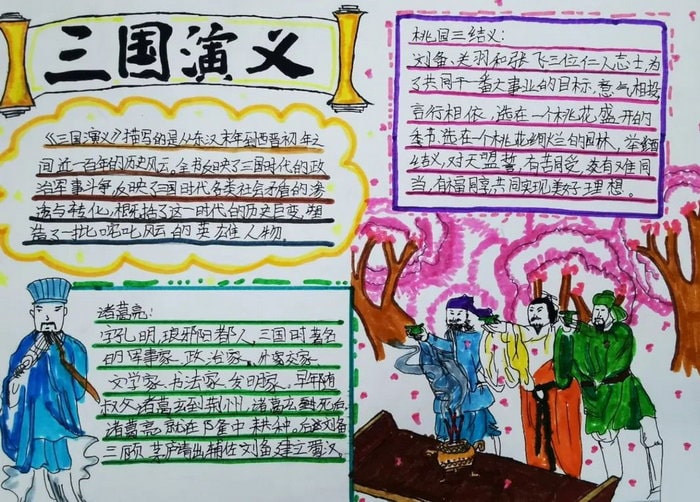 三国演义
《三国演义》描写的是从东汉末年到西晋初年之
间近一百年的历史风云。全书反映了三国时代的政
治军事斗争,反映了三国时代各类社会矛盾的渗
透与转化,概括了这一时代的历史巨变,塑
造了一批叱咤风云的英雄人物。
桃园三结义:
刘备、关羽和张飞三位仁人志士,为
了共同干一番大事业的目标,意气相投
言行相依,选在一个桃花盛开的
季节选在一个桃花绚烂的园林,举酒
结义,对天盟誓,有苦同受,有难同
当,有福同享,共同实现美好理想。
诸葛亮:
字孔明,琅邪阳都人,三国时著名
的军事家、政治家、外交家、
文学家、书法家、发明家。早年随
叔父诸葛玄到荆州,诸葛玄死
诸葛亮就在隆中耕种,后刘备
三顾茅庐请出辅佐刘备建立蜀汉